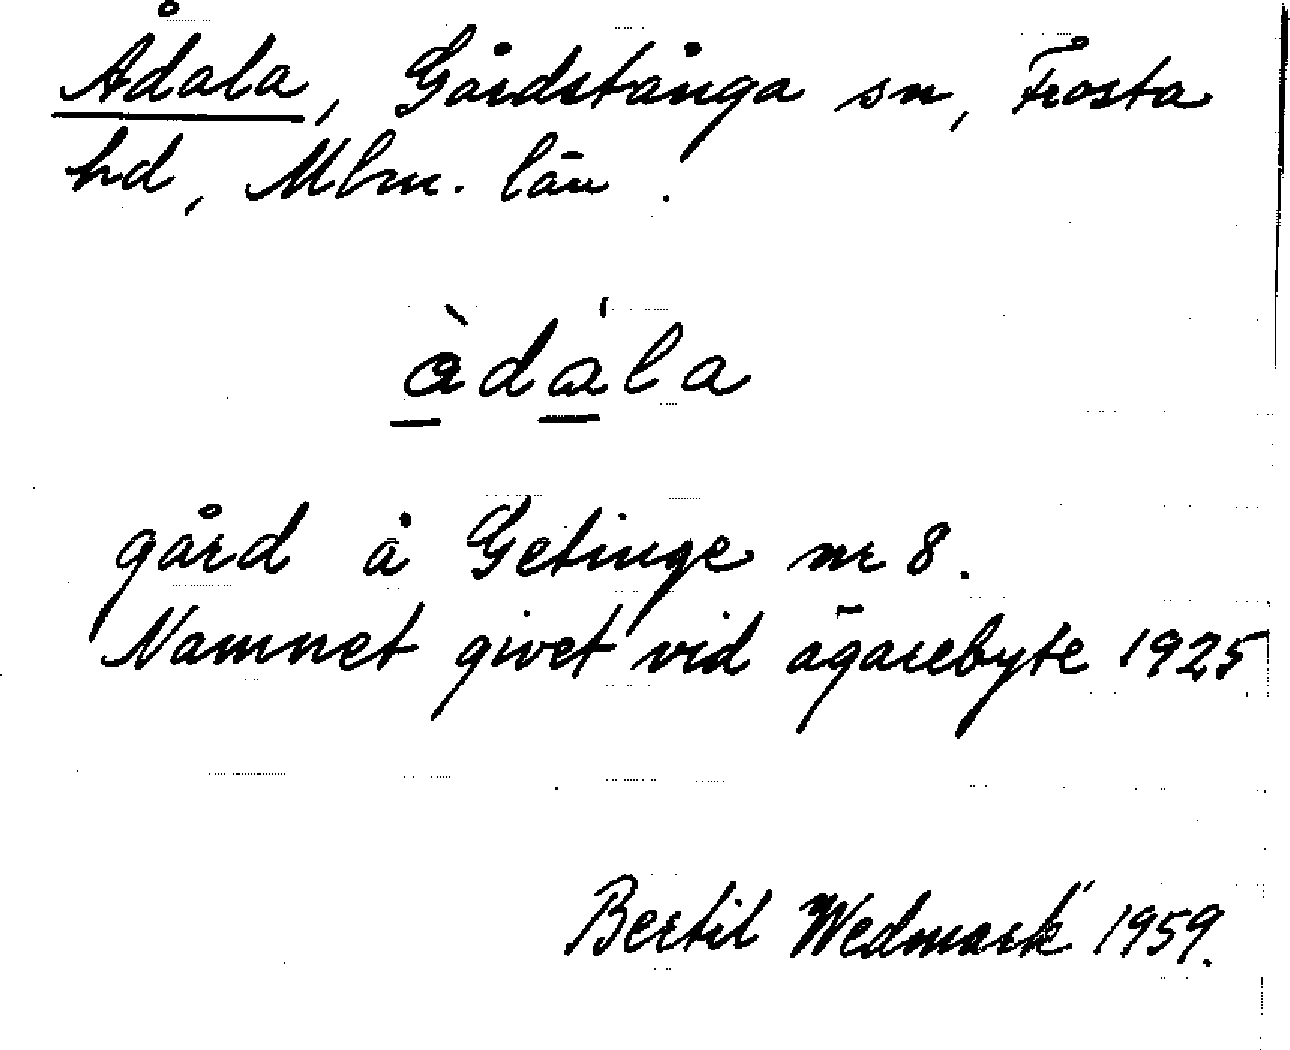 Ådala, Gårdstånga sn, Frosta
hd, Mlm. län.
àdála
gård å Getinge nr 8.
Namnet givet vid ägarebyte 1925
Bertil Wedmark 1959.